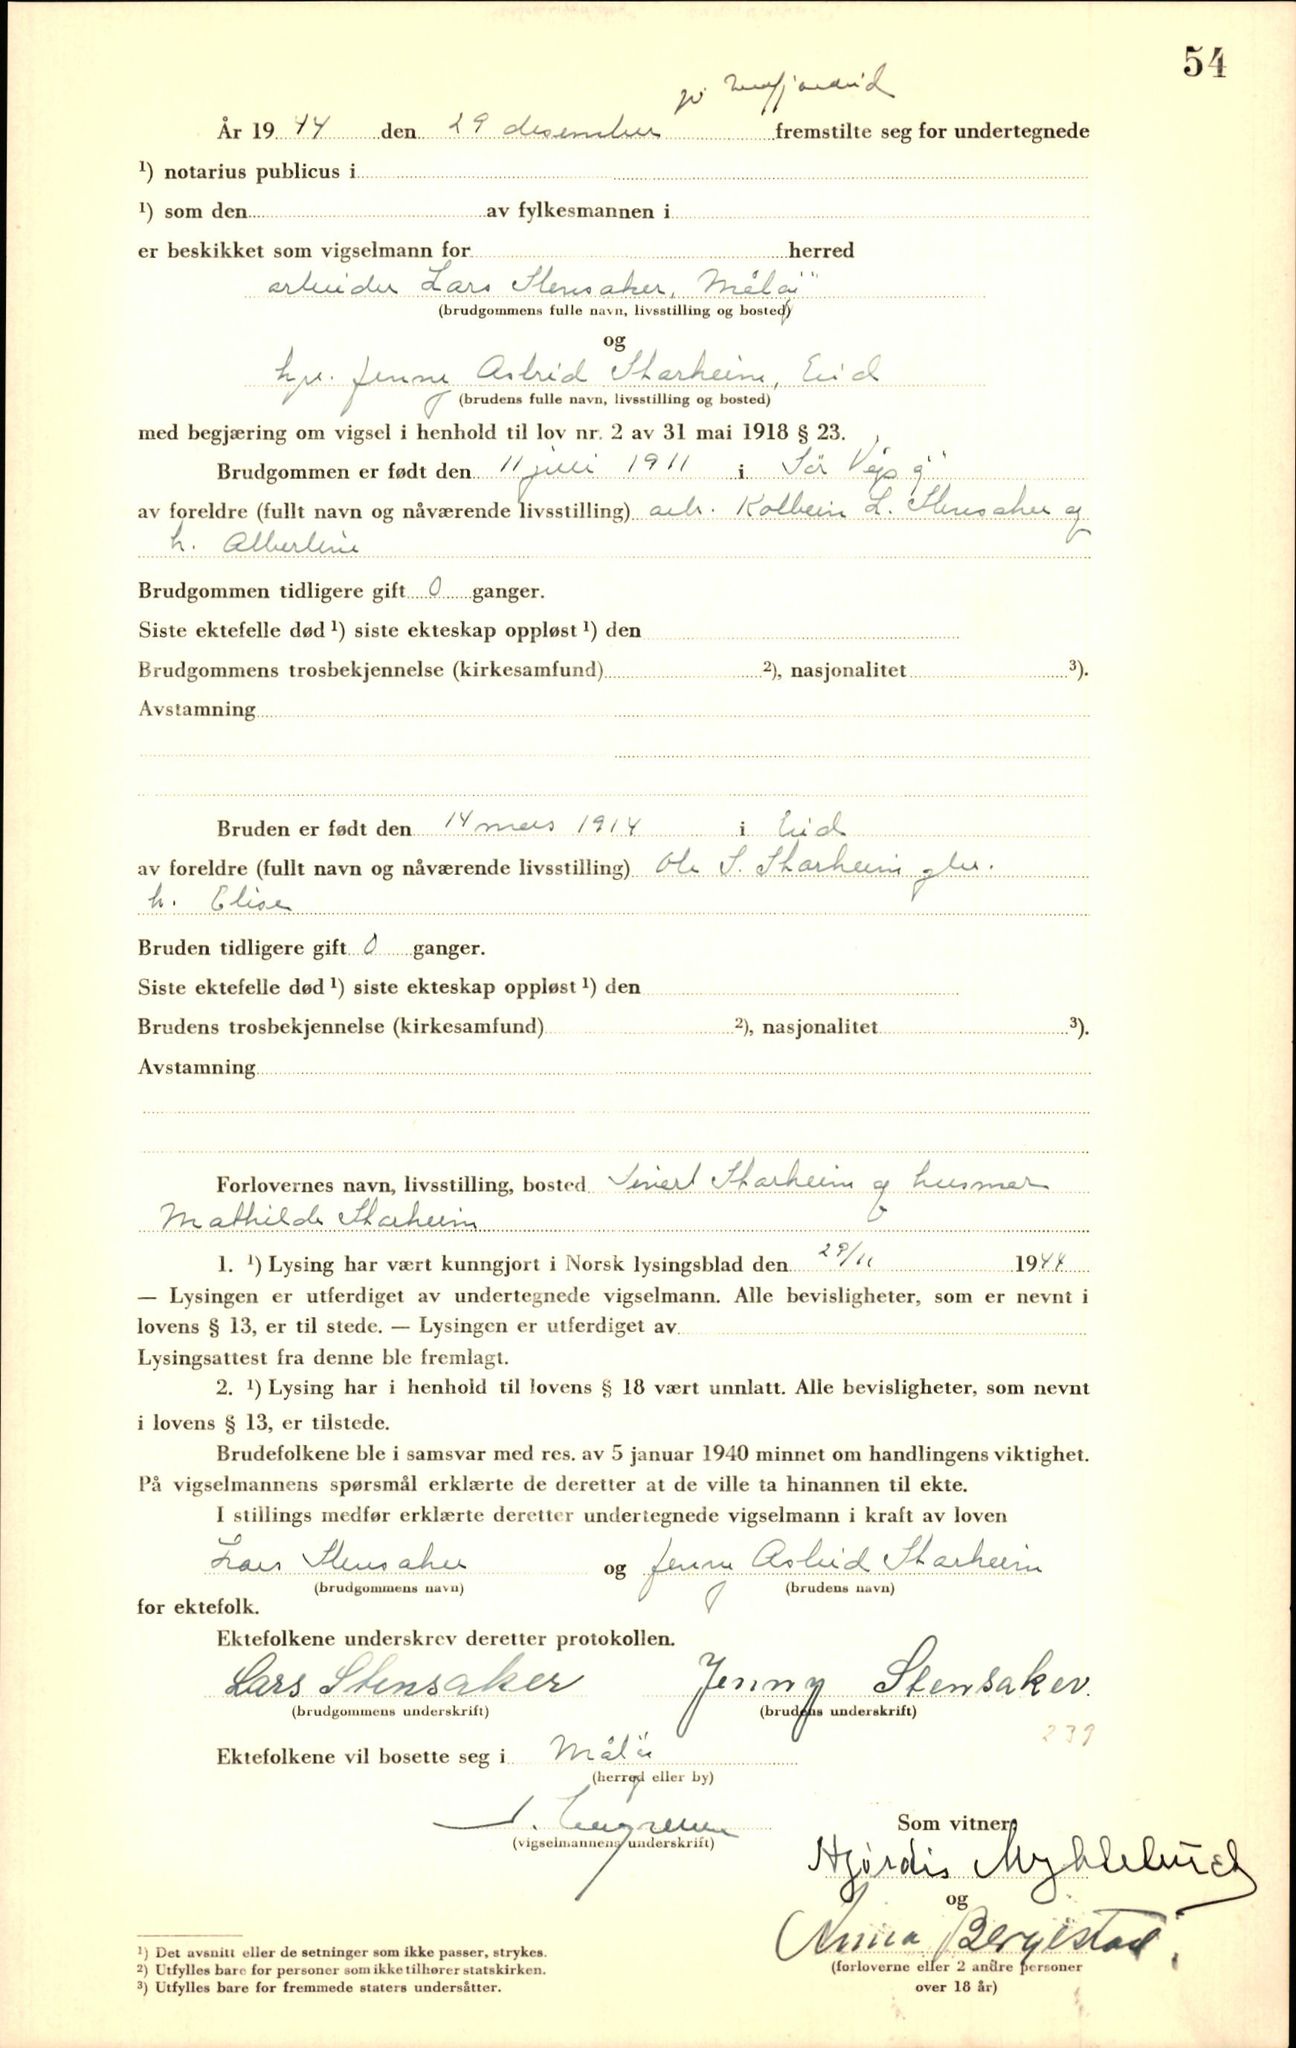 54
på Nordfjordeid
År 19 44 den 29 desember fremstilte seg for undertegnede
¹) notarius publicus i
¹) som den av fylkesmannen i
er beskikket som vigselmann for herred
arbeider Lars Stensaker, Måløy
(brudgommens fulle navn, livsstilling og bosted)
og
Jenny Astrid Starheim, Eid
(brudens fulle navn, livsstilling og bosted)
med begjæring om vigsel i henhold til lov nr. 2 av 31 mai 1918 § 23.
Brudgommen er født den 11 juli 1911 i Sør Vågsøy
av foreldre (fullt navn og nåværende livsstilling) arb. Kolbein L. Stensaker og
h. Albertine
Brudgommen tidligere gift 0 ganger.
Siste ektefelle død ¹) siste ekteskap oppløst ¹) den
Brudgommens trosbekjennelse (kirkesamfund) ²), nasjonalitet ³).
Avstamning
Bruden er født den 14 mars 1914 i Eid
av foreldre (fullt navn og nåværende livsstilling) Ole S. Starheim gbr.
h. Elise
Bruden tidligere gift 0 ganger.
Siste ektefelle død ¹) siste ekteskap oppløst ¹) den
Brudens trosbekjennelse (kirkesamfund) ²), nasjonalitet ³).
Avstamning
Forlovernes navn, livsstilling, bosted Sivert Starheim og husmor
Mathilde Starheim
1. ¹) Lysing har vært kunngjort i Norsk lysingsblad den 29/11 1944
— Lysingen er utferdiget av undertegnede vigselmann. Alle bevisligheter, som er nevnt i
lovens § 13, er til stede. — Lysingen er utferdiget av
Lysingsattest fra denne ble fremlagt.
2. ¹) Lysing har i henhold til lovens § 18 vært unnlatt. Alle bevisligheter, som nevnt
i lovens § 13, er tilstede.
Brudefolkene ble i samsvar med res. av 5 januar 1940 minnet om handlingens viktighet.
På vigselmannens spørsmål erklærte de deretter at de ville ta hinannen til ekte.
I stillings medfør erklærte deretter undertegnede vigselmann i kraft av loven
Lars Stensaker og Jenny Astrid Starheim
(brudgommens navn) (brudens navn)
for ektefolk.
Ektefolkene underskrev deretter protokollen.
Lars Stensaker Jenny Stensaker.
(brudgommens underskrift) (brudens underskrift)
239
Ektefolkene vil bosette seg i Måløy
(herred eller by)
Som vitner:
(vigselmannens underskrift)
Hjørdis Myklebust
og
Anna Bergestad.
(forloverne eller 2 andre personer
over 18 år)
¹) Det avsnitt eller de setninger som ikke passer, strykes.
²) Utfylles bare for personer som ikke tilhører statskirken.
³) Utfylles bare for fremmede staters undersåtter.